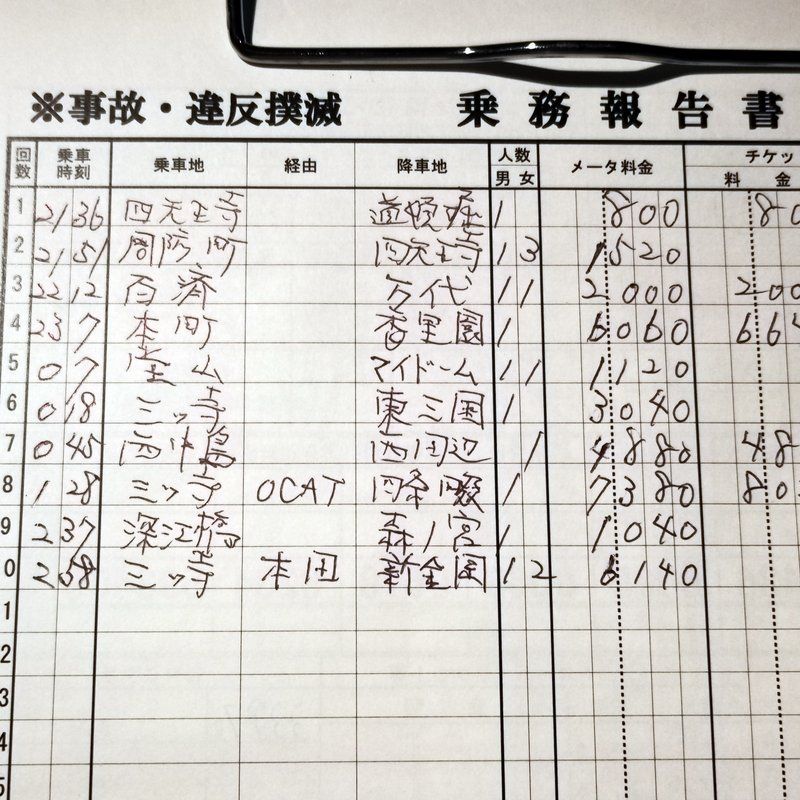 ※事故・違反撲滅 乗務報告書
回数 乗車時刻 乗車地 経由 降車地 人数 男 女 メータ料金 チケッ 料金
1 21 36 四天王寺 道頓堀 1 800 80
2 21 51 周防町 四天王寺 1 3 1520
3 22 12 百済 万代 1 1 2000 200
4 23 7 本町 香里園 1 6060 664
5 0 7 堂山 マイドーム 1 1 1120
6 0 18 三ッ寺 東三国 1 3040
7 0 45 西中島 西田辺 1 4880 48
8 1 28 三ッ寺 OCAT 四条畷 1 7380 80
9 2 37 深江橋 森ノ宮 1 1040
0 2 58 三ッ寺 本田 新金岡 1 2 6140
1
2
3
4
5